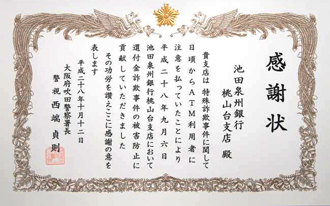 感謝状
池田泉州銀行
桃山台支店 殿
貴支店は特殊詐欺事件に関して
日頃からATM利用者に
注意を払っていたことにより
平成二十八年九月六日
池田泉州銀行桃山台支店において
還付金詐欺事件の被害防止に
貢献していただきました
その功労を讃えここに感謝の意を
表します
平成二十八年十月十二日
大阪府吹田警察署長
警視 西端貞則